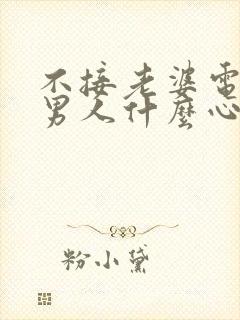 不接老婆電
男人什麼心
粉小黛